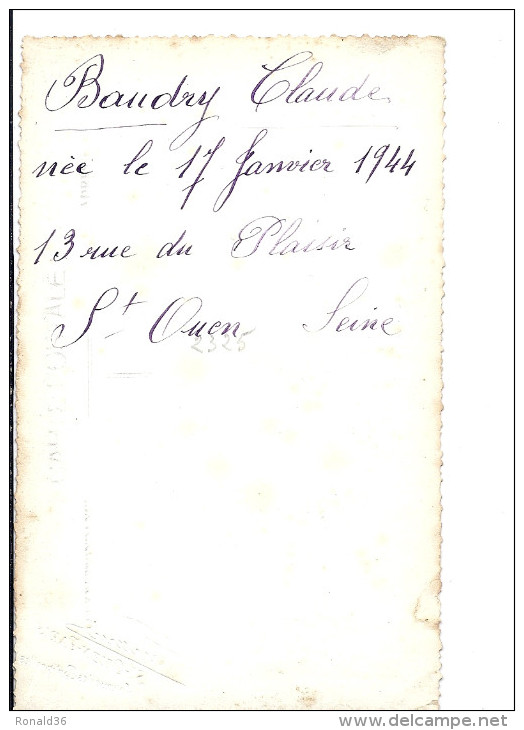 Baudry Claude
née le 17 Janvier 1944
13 rue du Plaisir
St Ouen Seine
2325
Ronald36
www.delcampe.net